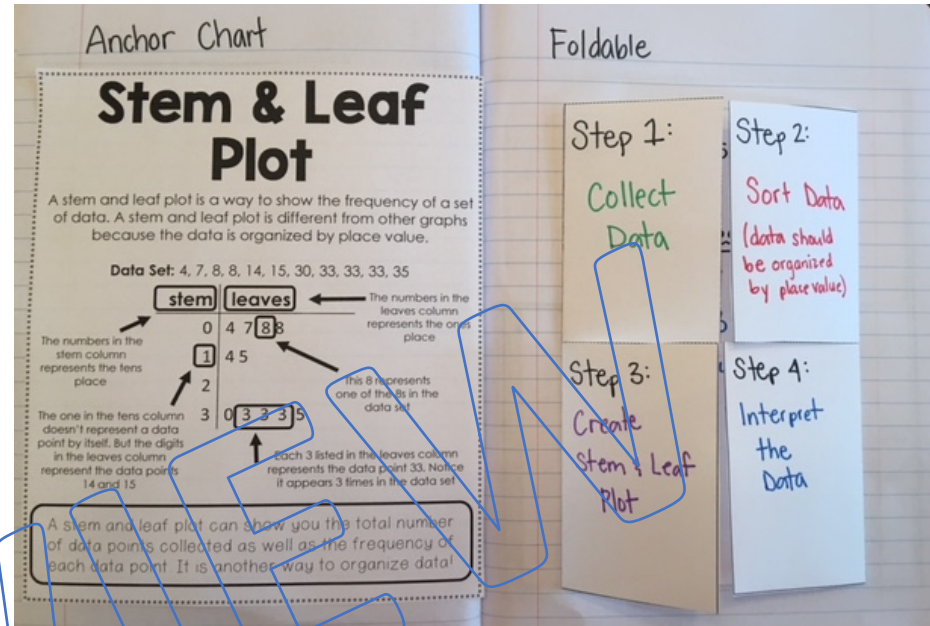 Anchor Chart
Stem & Leaf
Plot
A stem and leaf plot is a way to show the frequency of a set
of data. A stem and leaf plot is different from other graphs
because the data is organized by place value.
Data Set: 4, 7, 8, 8, 14, 15, 30, 33, 33, 33, 35
stem leaves
0 4 7 8 8
1 4 5
2
3 0 3 3 3 5
The numbers in the
leaves column
represents the ones
place
The numbers in the
stem column
represents the tens
place
This 8 represents
one of the 8s in the
data set
The one in the tens column
doesn't represent a data
point by itself. But the digits
in the leaves column
represent the data points
14 and 15
Each 3 listed in the leaves column
represents the data point 33. Notice
it appears 3 times in the data set
A stem and leaf plot can show you the total number
of data points collected as well as the frequency of
each data point. It is another way to organize data!
Foldable
Step 1:
Collect
Data
Step 2:
Sort Data
(data should
be organized
by place value)
Step 3:
Create
Stem & Leaf
Plot
Step 4:
Interpret
the
Data